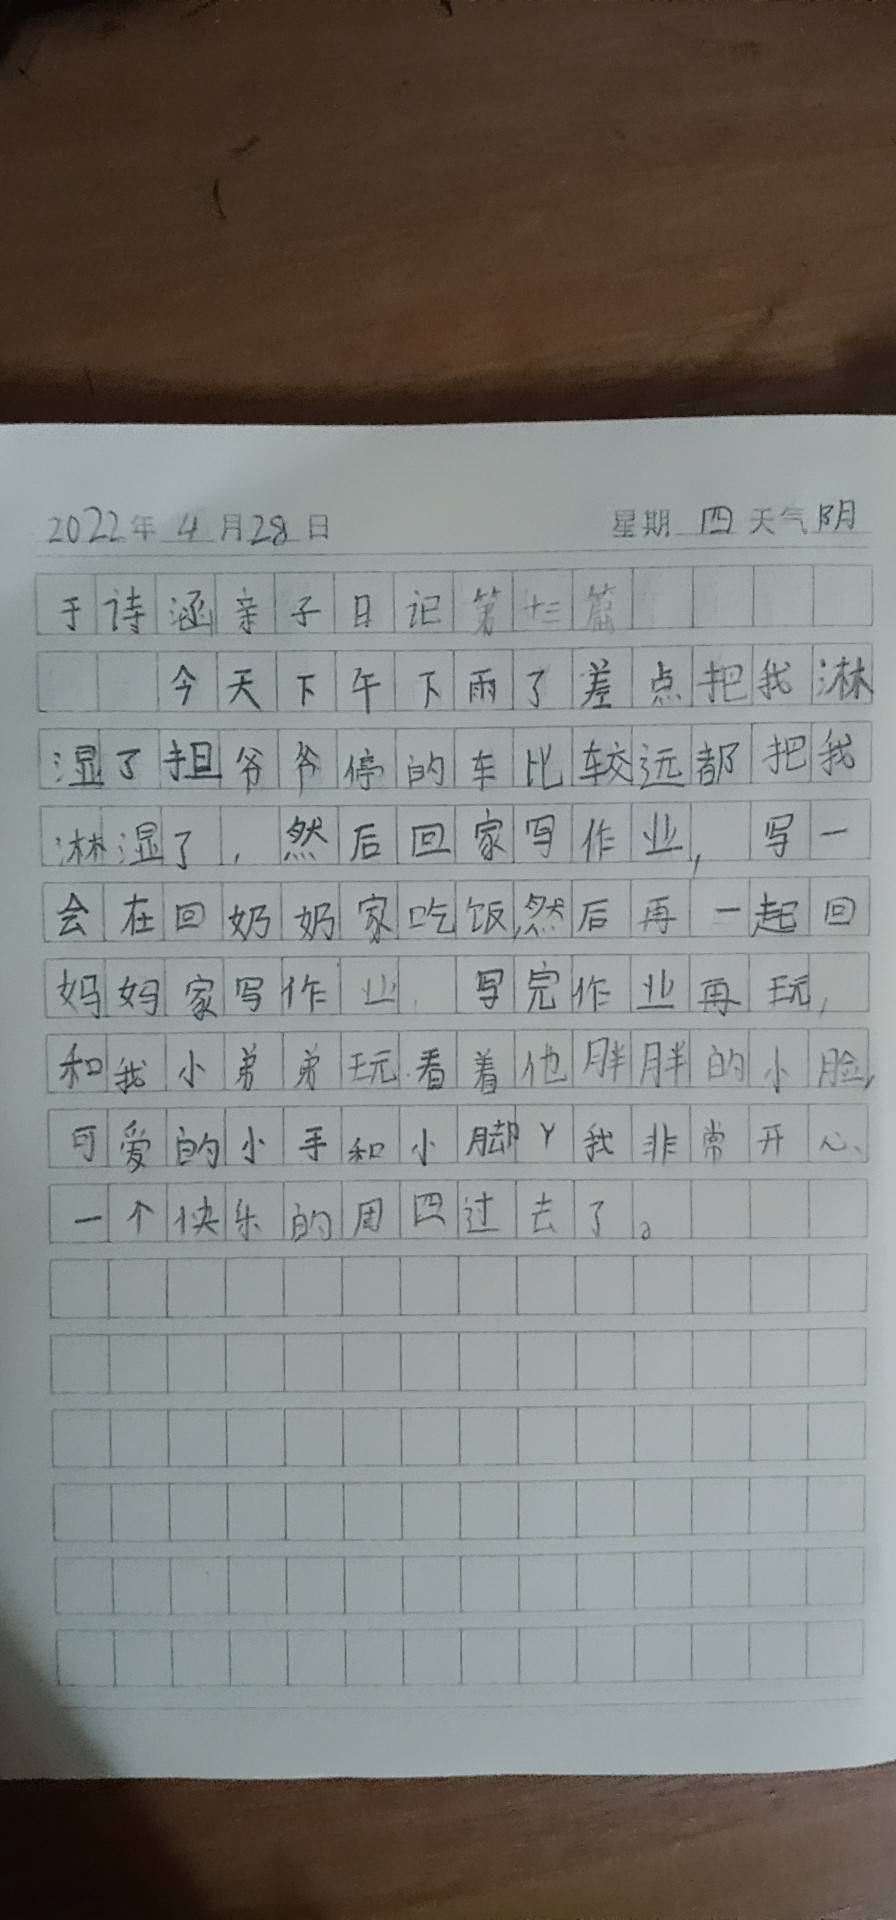 2022年 4月28日 星期 四 天气 阴
于诗涵亲子日记第十三篇
今天下午下雨了差点把我淋
湿了担爷爷停的车比较远都把我
淋湿了，然后回家写作业，写一
会在回奶奶家吃饭,然后再一起回
妈妈家写作业．写完作业再玩，
和我小弟弟玩.看着他胖胖的小脸,
可爱的小手和小脚丫我非常开心、
一个快乐的周四过去了。